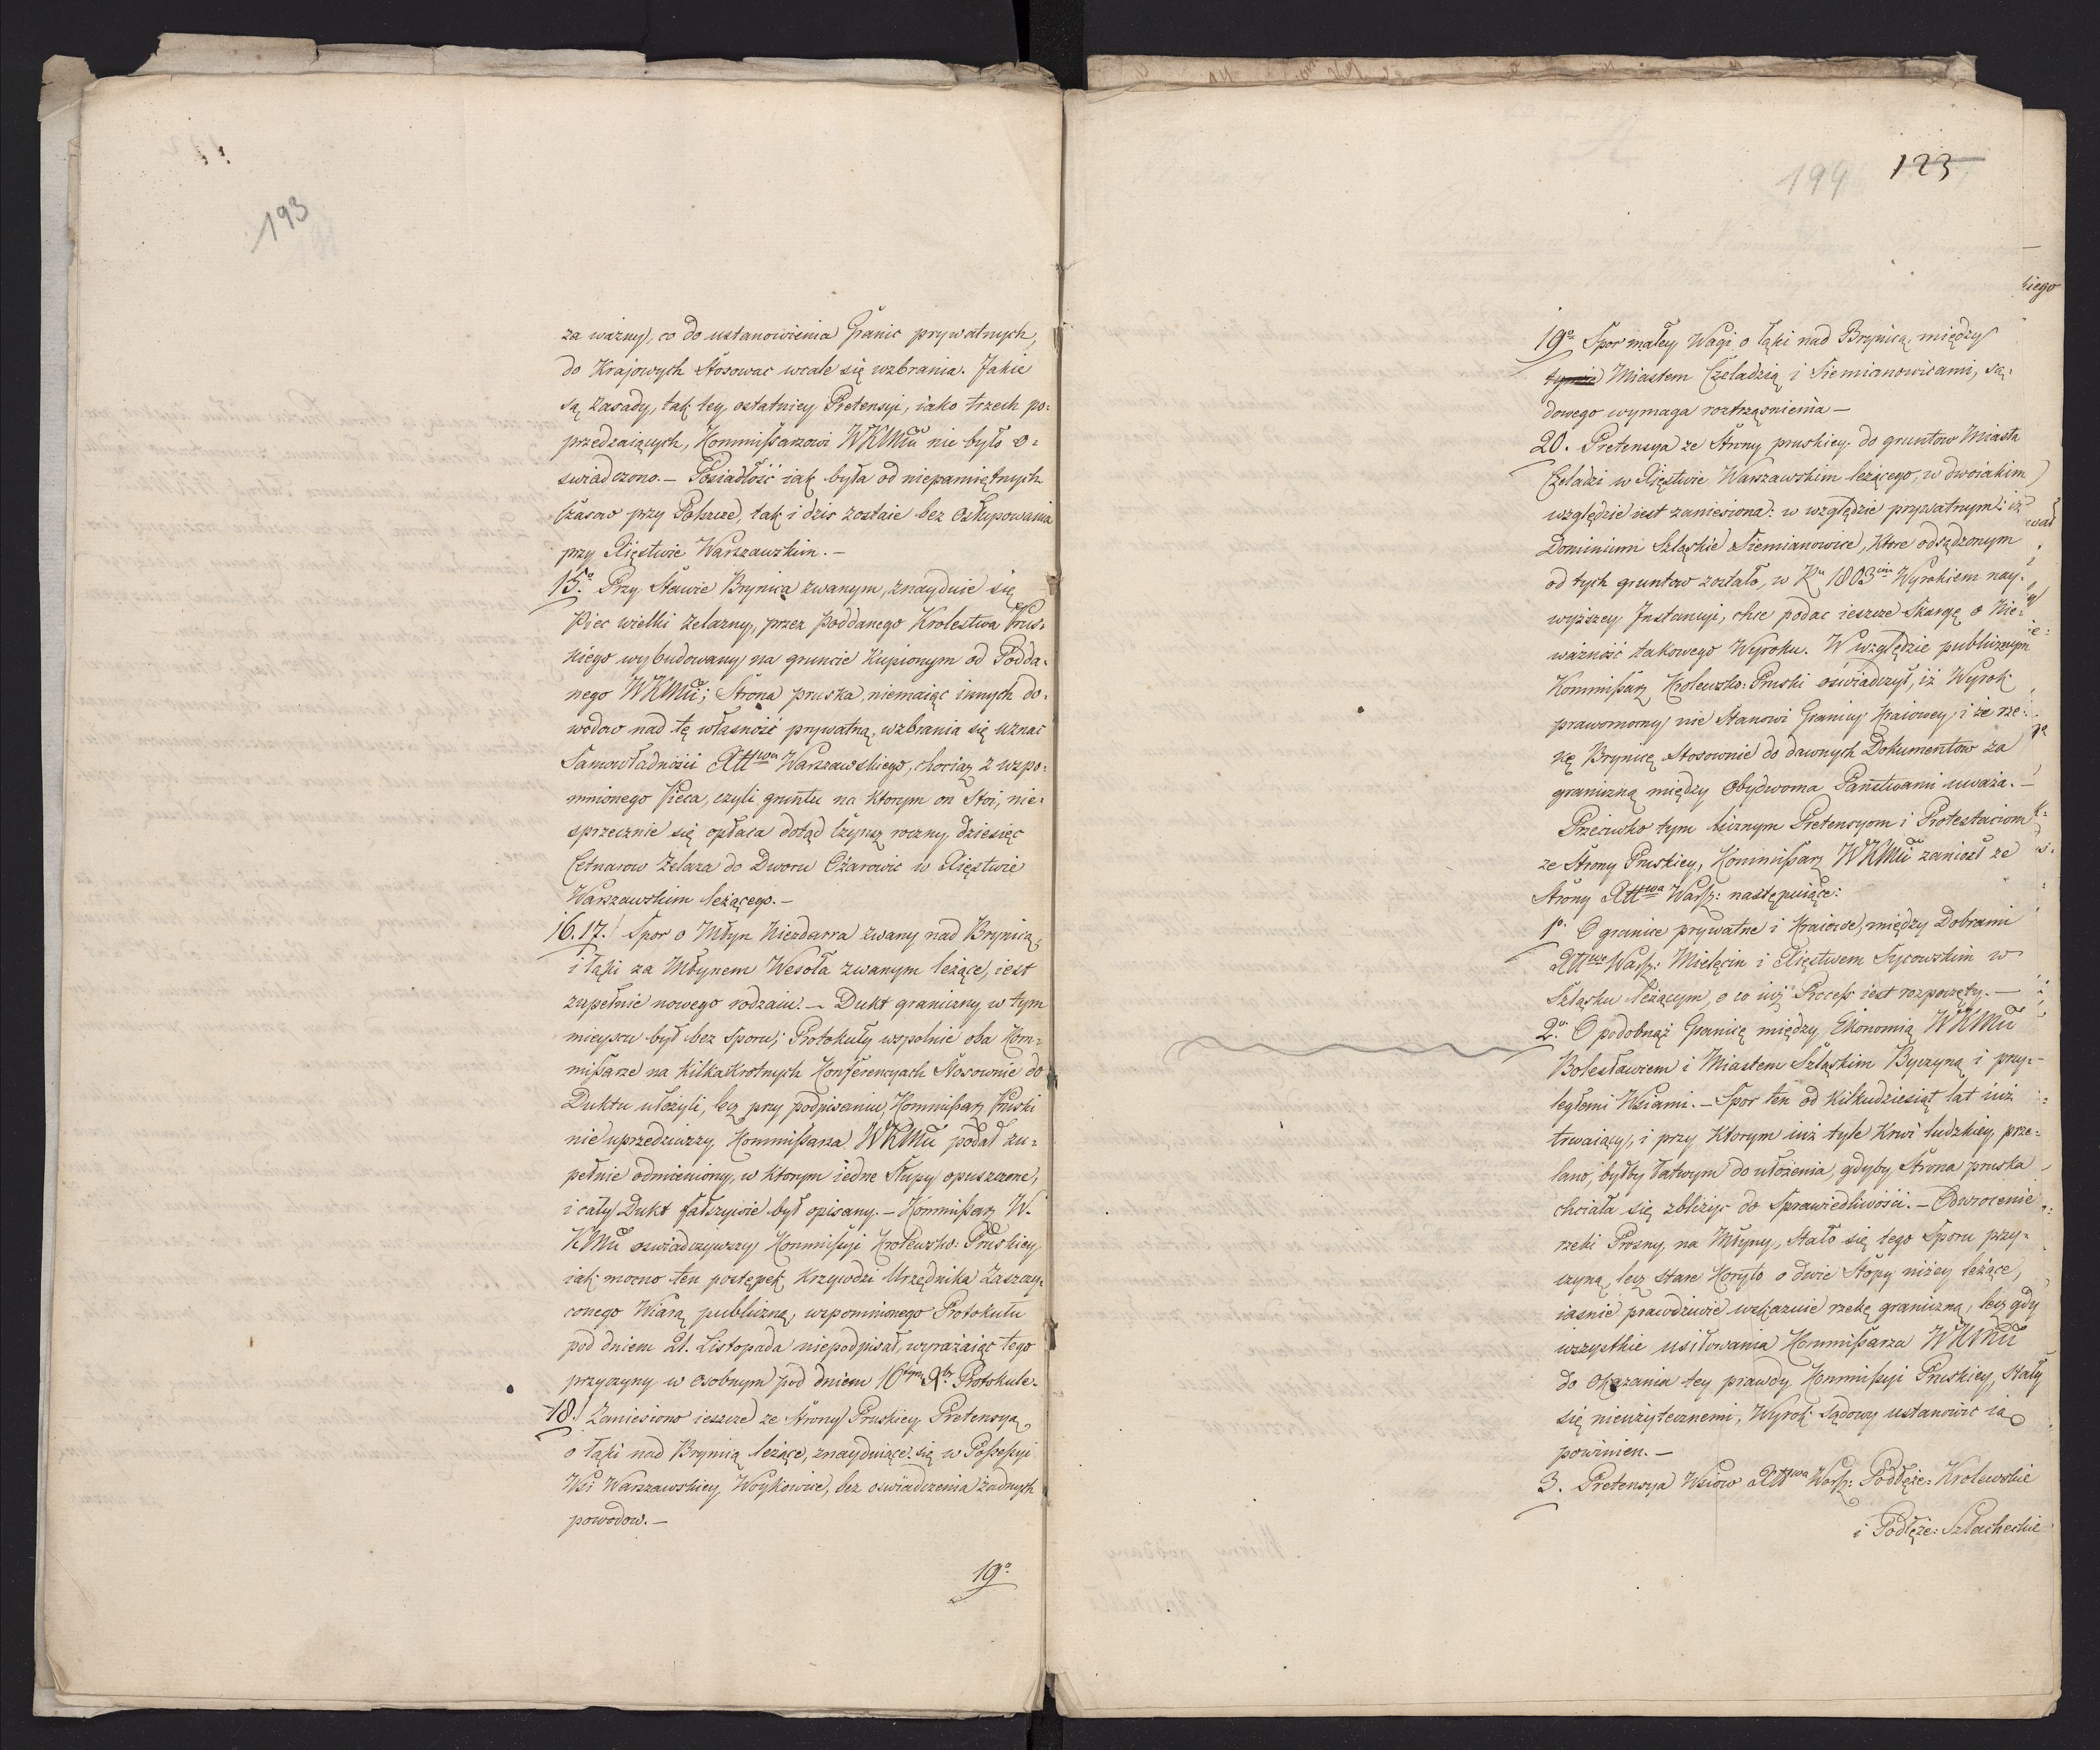 193
za ważny, co do ustanowienia Granic prywatnych,
do Krajowych Stosowac wcale się wzbrania. Jakie
są Zasady, tak tey ostatniey Pretensyi, iako trzech po=
przedzaiących, Kommissarzowi WKMCi nie było o=
swiadczono. — Posiadłość iak była od niepamiętnych
Czasow przy Polszcze, tak i dzis zostaie bez Osłupowania
przy Xięstwie Warszawskim. —
15o. Przy Stawie Brynica zwanym, znayduie się
Piec wielki żelazny, przez Poddanego Krolestwa Prus=
kiego wybudowany na gruncie Kupionym od Podda=
nego WKMCi; Strona pruska, niemaiąc innych do=
wodow nad tę własność prywatną, wzbrania się uznać
Samowładności Xttwa Warszawskiego, chociaż z wspo=
mnionego Pieca, czyli gruntu na ktorym on Stoi, nie=
sprzecznie się opłaca dotąd Czynsz roczny, dziesięć
Cetnarow Żelaza do Dworu Ożarowic w Xięstwie
Warszawskim leżącego. —
16. 17. Spor o Młyn Niezdarra zwany nad Brynicą,
i łąki za Młynem Wesoła zwanym leżące, iest
zupełnie nowego rodzaiu. — Dukt graniczny w tym
mieyscu był bez Sporu; Protokuły wspolnie oba Kom=
missarze na Kilkakrotnych Konferencyach Stosownie do
Duktu ułożyli, lecz przy podpisaniu, Kommissarz Pruski
nieuprzedziwszy Kommissarza WKMCi podał zu=
pełnie odmieniony, w ktorym iedne Słupy opuszczone,
i cały Dukt fałszywie był opisany. — Kommissarz W.
KMCi oswiadczywszy Kommissyi Krolewsko=Pruskiey
iak mocno ten postępek krzywdzi Urzędnika Zaszczy=
conego Wiarą publiczną, wspomnionego Protokułu
pod dniem 21. Listopada niepodpisał, wyrażaiąc tego
przyczyny w osobnym pod dniem 16tym Xbr Protokule.
18. Zaniesiono ieszcze ze Strony Pruskiey Pretensyą,
o łąki nad Brynicą leżące, znayduiące się w Possessyi
Wsi Warszawskiey Woykowice, bez oswiadczenia żadnych
powodow. —
19o.
194 123
19o. Spor małey Wagi o łąki nad Brynicą, między
tymże Miastem Czeladzią i Siemianowicami, są=
dowego wymaga roztrząsnienia —
20. Pretensya ze Strony pruskiey do gruntow Miasta
Czeladzi w Xięstwie Warszawskim leżącego, w dwoiakim
względzie iest zaniesiona: w względzie prywatnym: iż
Dominium Szląskie Siemianowice, ktore odsądzonym
od tych gruntow zostało, w Ru 1803cim Wyrokiem nay=
wyższey Instancyi, chce podac ieszcze Skargę o Nie=
ważność takowego Wyroku. W względzie publicznym
Kommissarz Krolewsko=Pruski oświadczył, iż Wyrok
prawomocny nie Stanowi Granicy Kraiowey, i że rze=
kę Brynicę Stosownie do dawnych Dokumentow za
graniczną między Obydwoma Państwami uważa. —
Przeciwko tym licznym Pretensyom i Protestaciom
ze Strony Pruskiey, Kommissarz WKMCi zaniosł ze
Strony Xttwa Wassz: następuiące:
1o. O granice prywatne i Kraiowe, między Dobrami
Xttwa Warsz: Mielęcin i Xięstwem Sycowskim w
Szląsku leżącym, o co iuż Process iest rozpoczęty. —
2o. O podobnąż Granicę między Ekonomią WKMCi
Bolesławcem i Miastem Szląskim Byczyną i przy=
ległemi Wsiami. — Spor ten od Kilkudziesiąt lat iuż
trwaiący, i przy Ktorym iuż tyle Krwi ludzkiey prze=
lano, byłby łatwym do ułożenia, gdyby Strona pruska
chciała się zbliżyc do Sprawiedliwości. — Odwrocenie
rzeki Prosny, na Młyny, Stało się tego Sporu przy=
czyną, lecz stare Koryto o dwie Stopy niżey leżące,
iasnie prawdziwie wskazuie rzekę graniczną, lecz gdy
wszystkie usiłowania Kommissarza WKMCi
do okazania tey prawdy Kommissyi Pruskiey, Stały
się nieużytecznemi, Wyrok Sądowy ustanowić ią
powinien. —
3. Pretensya Wsiow Xttwa Warsz: Podłęże=Krolewskie
i Podłęże=Szlacheckie